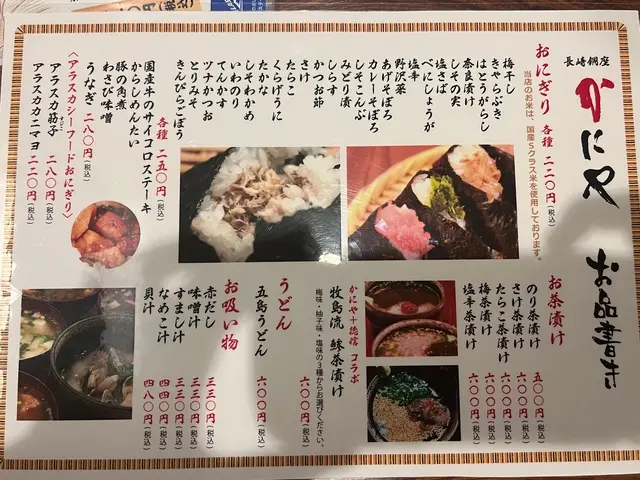 長崎銅座
かにや
お品書き
おにぎり 各種 二二〇円(税込)
当店のお米は、国産Sクラス米を使用しております。
梅干し
きゃらぶき
はとうがらし
奈良漬け
しその実
塩さば
べにしょうが
塩辛
野沢菜
カレーそぼろ
あげそぼろ
しそこんぶ
みどり漬
しらす
かつお節
さけ
たらこ
くらげうに
たかな
しそわかめ
いわのり
てんかす
ツナかつお
とりみそ
きんぴらごぼう
各種 二五〇円(税込)
国産牛のサイコロステーキ
からしめんたい
豚の角煮
わさび味噌
うなぎ 二八〇円(税込)
〈アラスカシーフードおにぎり〉
アラスカ筋子 二八〇円(税込)
アラスカカニマヨ 二二〇円(税込)
お茶漬け
のり茶漬け 五〇〇円(税込)
さけ茶漬け 六〇〇円(税込)
たらこ茶漬け 六〇〇円(税込)
梅茶漬け 六〇〇円(税込)
塩辛茶漬け 六〇〇円(税込)
かにや+徳信 コラボ
牧島流 鯵茶漬け 六〇〇円(税込)
梅味・柚子味・塩味の3種からお選びください。
うどん
五島うどん 六〇〇円(税込)
お吸い物
赤だし 三三〇円(税込)
味噌汁 三三〇円(税込)
すまし汁 三三〇円(税込)
なめこ汁 四四〇円(税込)
貝汁 四八〇円(税込)